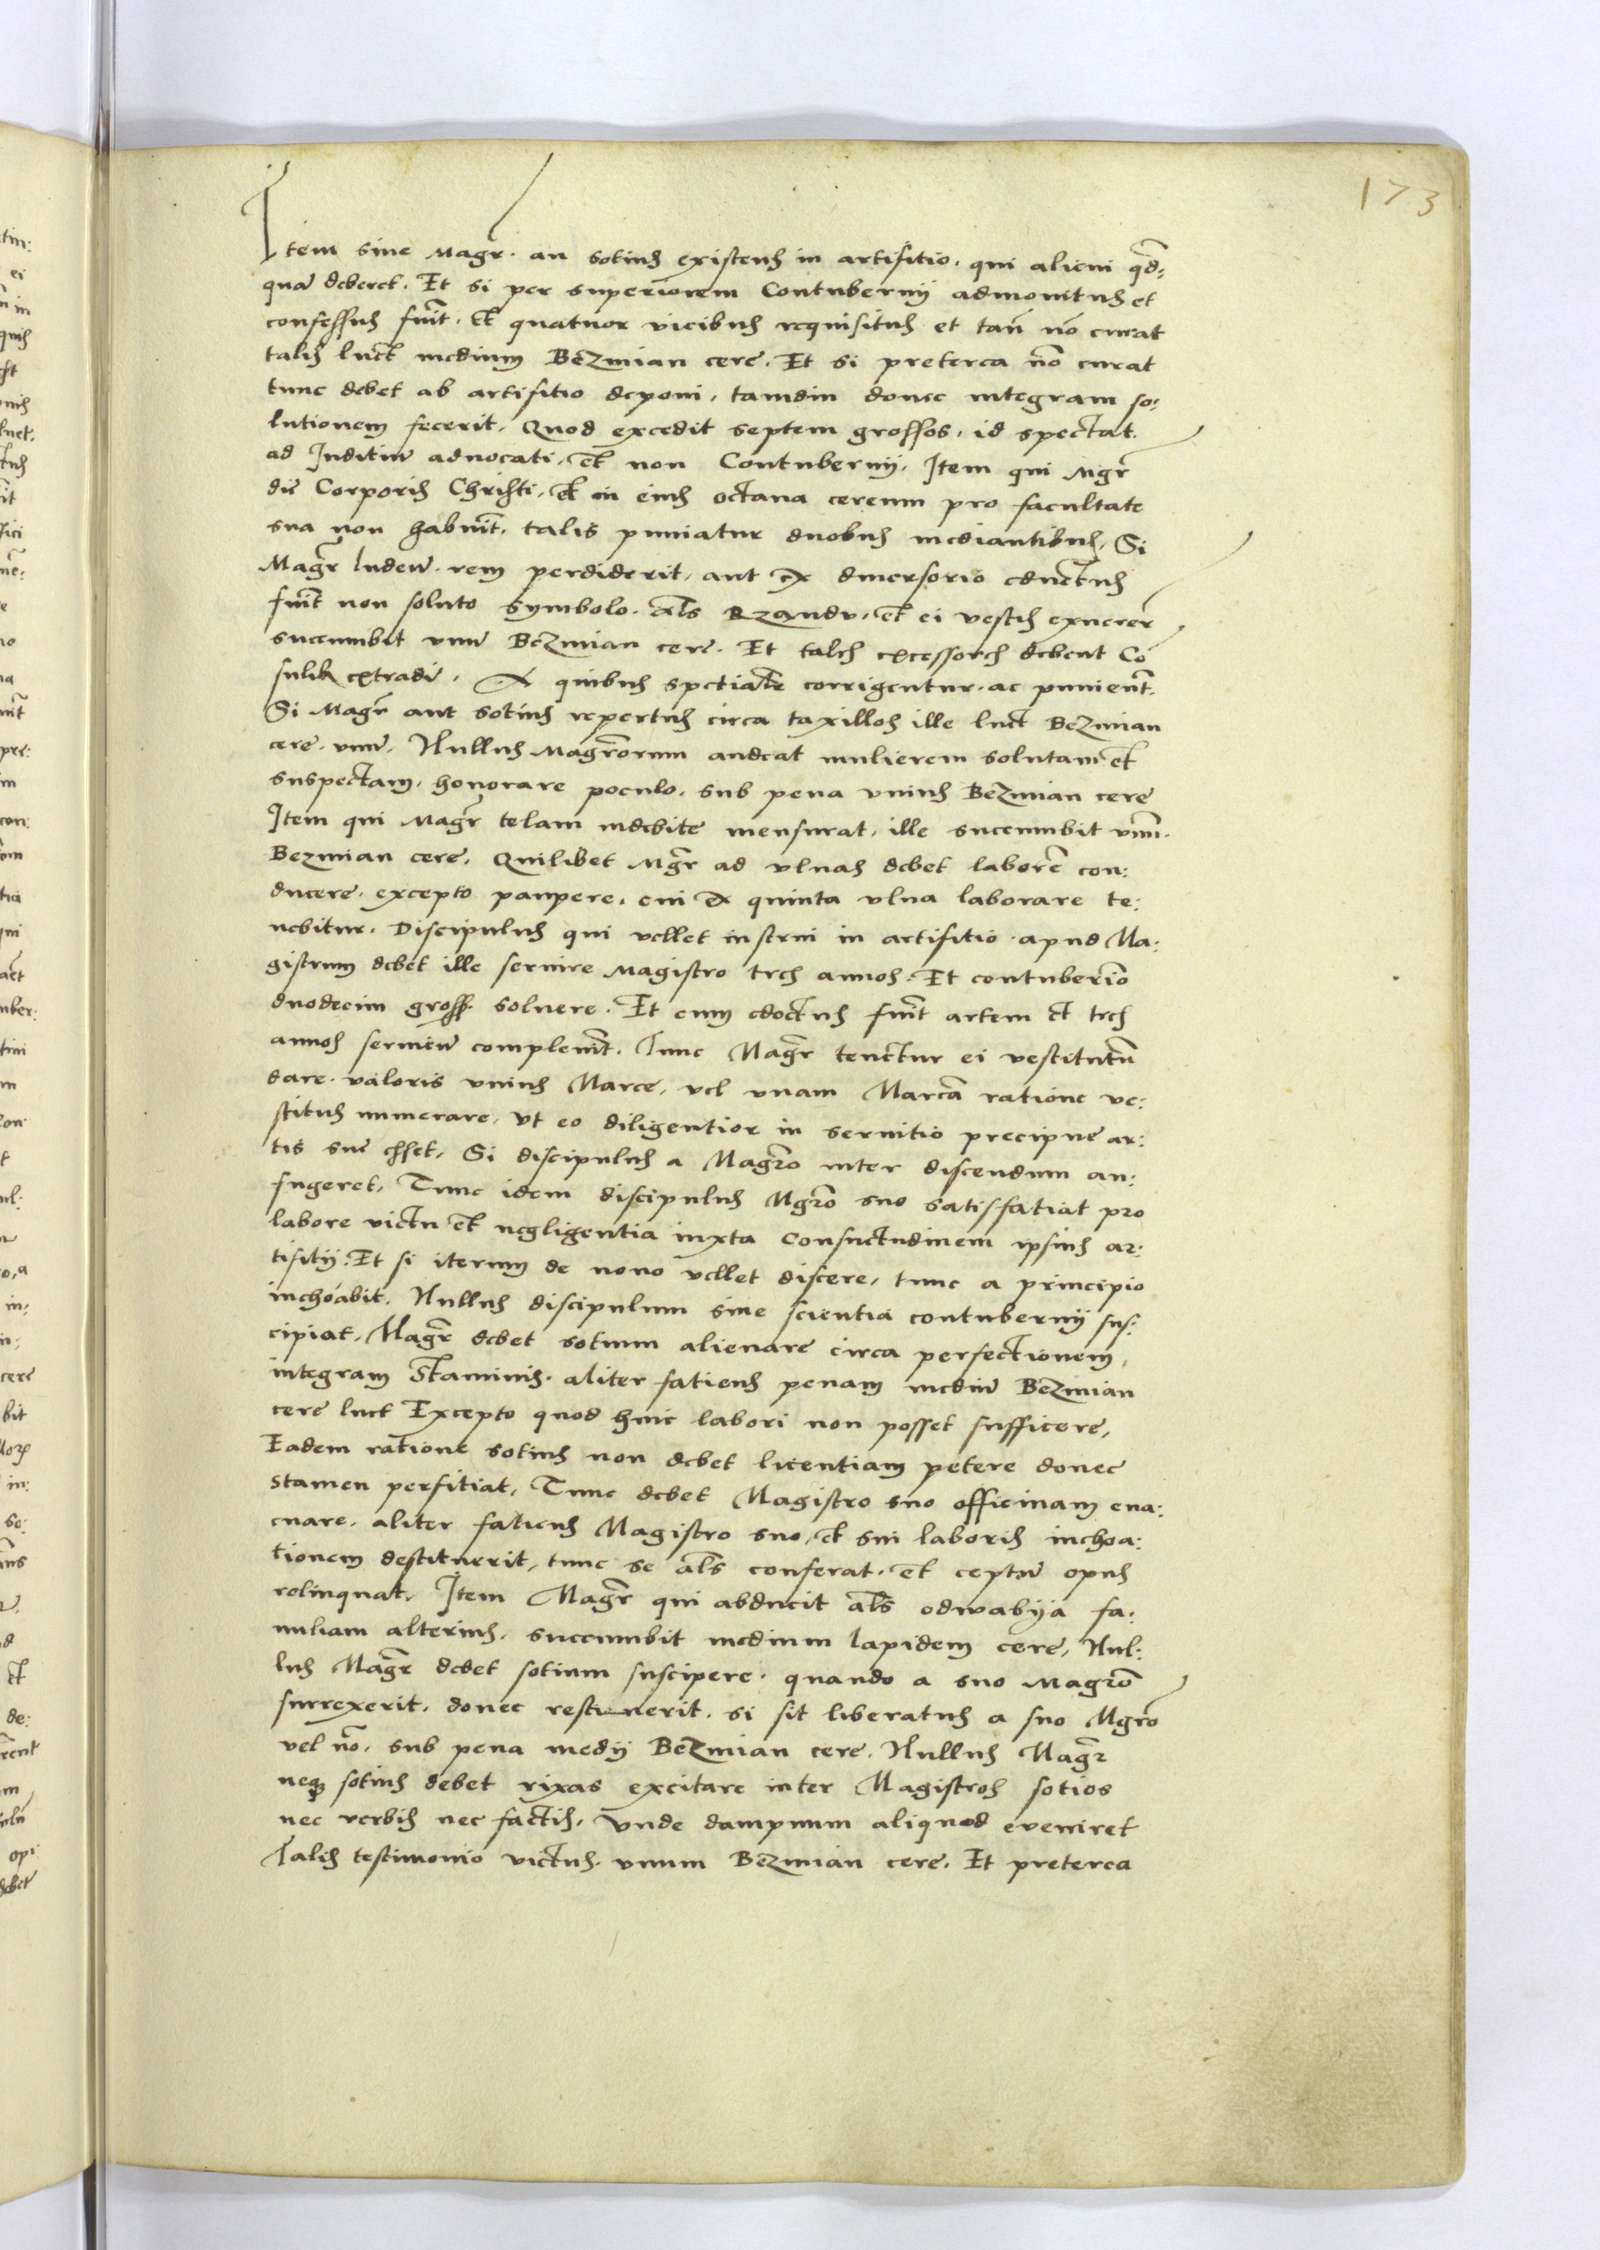 173
Item sive Magr̄. an sotius existens in artifitio. qui alicui qd̄:
quā deberet. Et si per superiorem Contubernij admonitus et
confessus fuit̄. Et quatuor vicibus requisitus et tam̄ nō curat
talis luet medium Bezmian cere. Et si preterea nō curat
tunc debet ab artifitio deponi, tamdiu donec integram so:
lutionem fecerit. Quod excedit septem grossos, id spectat
ad Juditiū advocati, et non Contubernij. Item qui Mgr̄
die Corporis Christi, et in eius octava cereum pro facultate
sua non habuit̄. talis puniatur duobus mediantibus. Si
Magr̄ ludēn. rem perdiderit, aut ex diversorio eductus
fuit̄ non soluto symbolo. als̄ Rzandu, et ei vestis exueret̄
succumbit unū Bezmian cere. Et tales excessores debent Cō
sulib extradi. A quibus spetiale corrigentur. ac punient̄.
Si Magr̄ aut sotius repertus circa taxillos ille luet Bezmian
cere. unū. Nullus Magrōrum audeat mulierem solutam et
suspectam, honorare poculo, sub pena unius Bezmian cere
Item qui Magr̄ telam indebite mensurat, ille succumbit unū.
Bezmian cere. Quilibet Mgr̄ ad ulnas debet laborē con:
ducere. excepto paupere, cui ex quinta ulna laborare te:
nebitur. Discipulus qui vellet instrui in artifitio apud Ma:
gistrum debet ille servire Magistro tres annos. Et contuberiō
duodecim gross. solvere. Et cum edoctus fuit̄ artem et tres
annos serviēn compleuit̄. Tunc Magr̄ tenetur ei vestitutū
dare. valoris unius Marce, vel unam Marcā ratione ve:
stitus numerare, ut eo diligentior in servitio precipue ar:
tis sue esset. Si discipulus a Magrō inter discendum au:
fugeret, Tunc idem discipulus Mgrō suo satisfatiat pro
labore victu et negligentia iuxta Consuetudinem ipsius ar:
tifitij. Et si iterum de novo vellet discere, tunc a principio
inchoabit. Nullus discipulum sine scientia contubernij sus:
cipiat. Magr̄ debet sotium alienare circa perfectionem,
integram Staminis. aliter fatiens penam mediū Bezmian
cere luet Excepto quod huic labori non posset sufficere,
Eadem ratione sotius non debet licentiam petere donec
stamen perfitiat, Tunc debet Magistro suo officinam eva:
cuare. aliter fatiens Magistro suo, et sui laboris inchoa:
tionem destituerit, tunc se als̄ conferat. et ceptū opus
relinquat. Item Magr̄ qui abducit als̄ odwabija fa:
miliam alterius, succumbit medium lapidem cere, Nul:
lus Magr̄ debet sotium suscipere. quando a suo Magrō
surrexerit, donec resciuerit. si sit liberatus a suo Mgrō
vel nō. sub pena medij Bezmian cere. Nullus Magr̄
neq sotius debet rixas excitare inter Magistros sotios
nec verbis nec factis, Unde dampnum aliquod eveniret
Talis testimonio victus. unum Bezmian cere. Et preterea